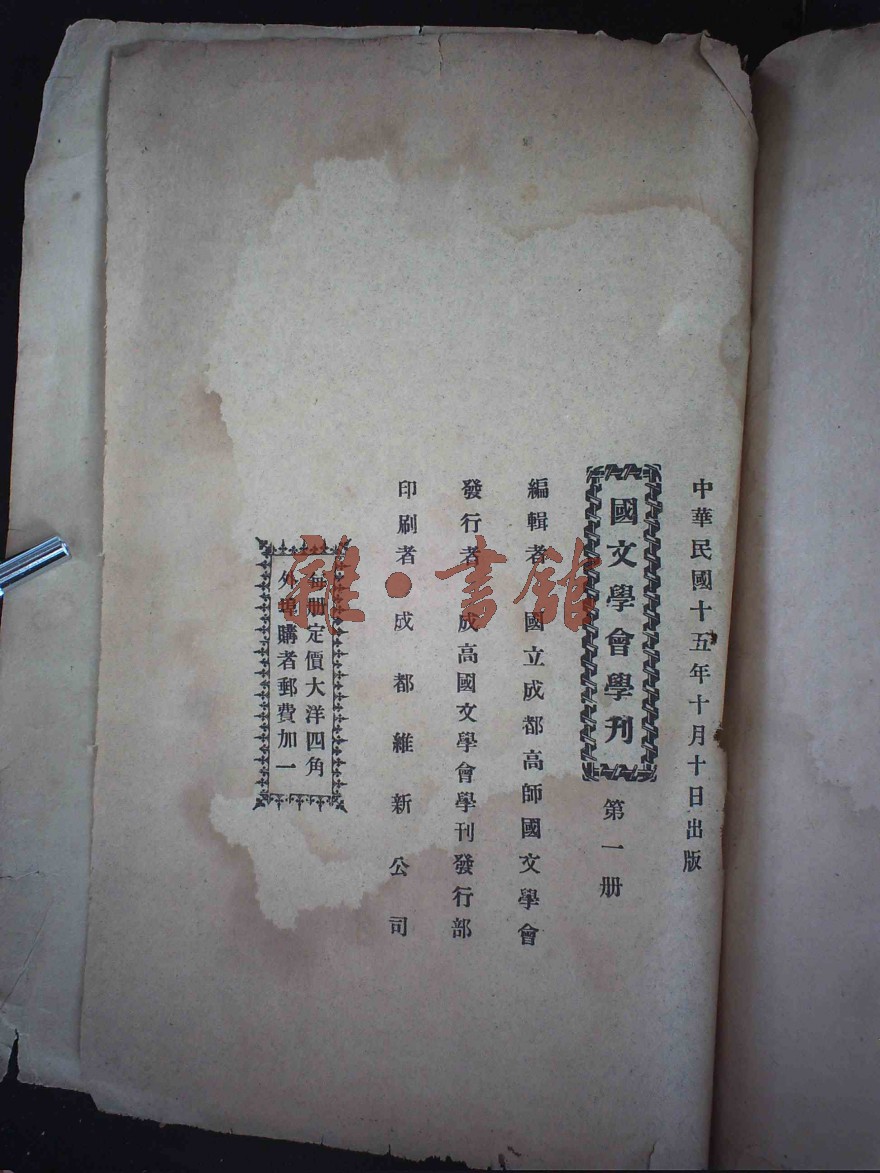 中華民國十五年十月十日出版
國文學會學刊
第一册
編輯者 國立成都高師國文學會
發行者 成高國文學會學刊發行部
印刷者 成都維新公司
每册定價大洋四角
外埠購者郵費加一
雜·書館